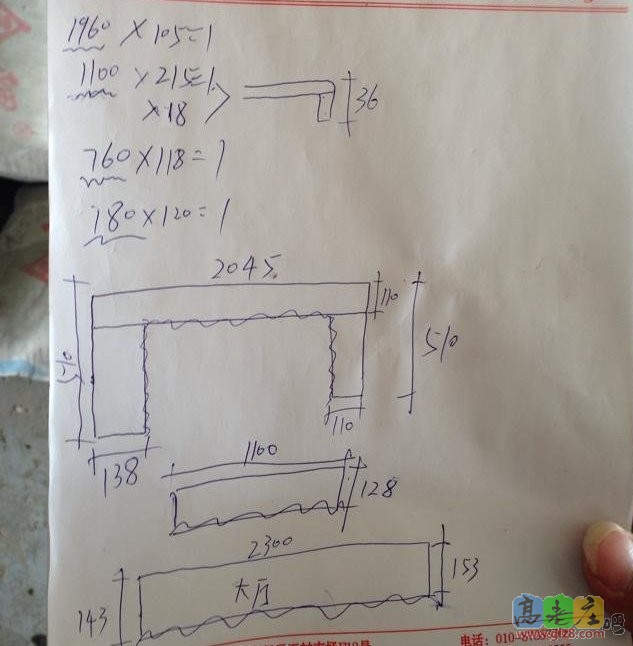 1960 × 105=1
1100 × 215=1
×18
36
760×118=1
180×120=1
2045
110
510
510
110
138
1100
128
2300
大厅
153
143
高老庄吧
电话：010-8